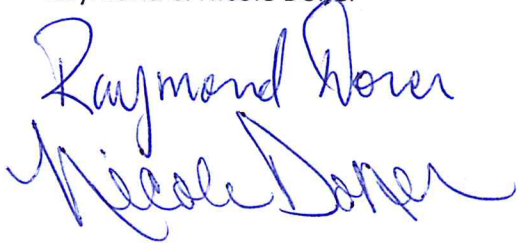 Raymond Dorer
Nicole Dorer